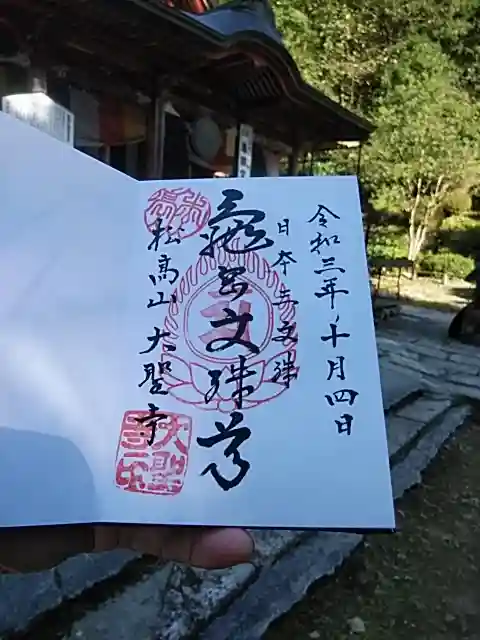 令和三年十月四日
日本三文殊
亀岡文殊尊
松高山 大聖寺
大聖寺